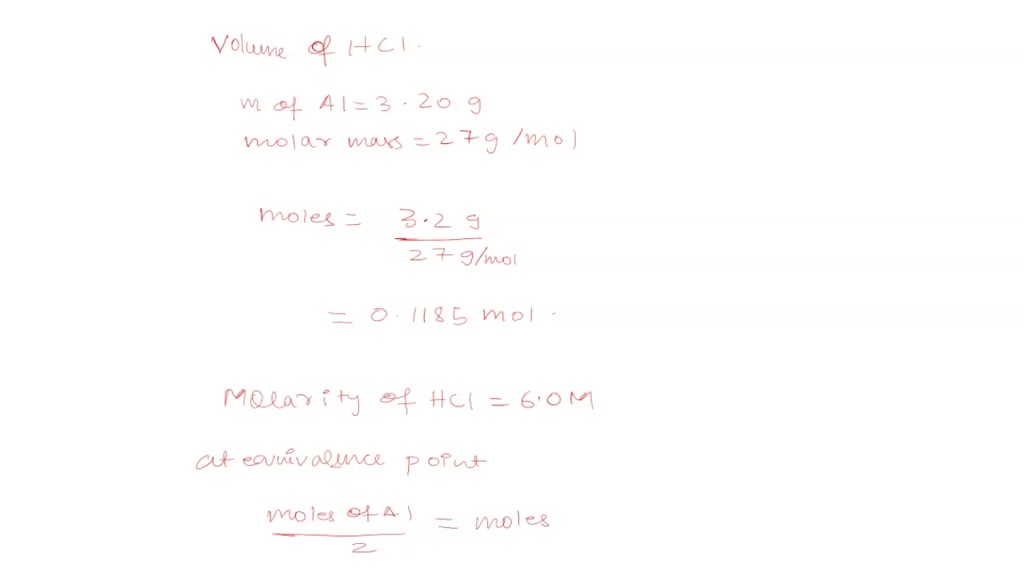 Volume of HCl.
m of Al = 3.20 g
molar mass = 27g/mol
moles = 3.2 g
27 g/mol
= 0.1185 mol.
Molarity of HCl = 6.0M
at equivalence point
moles of Al = moles
2